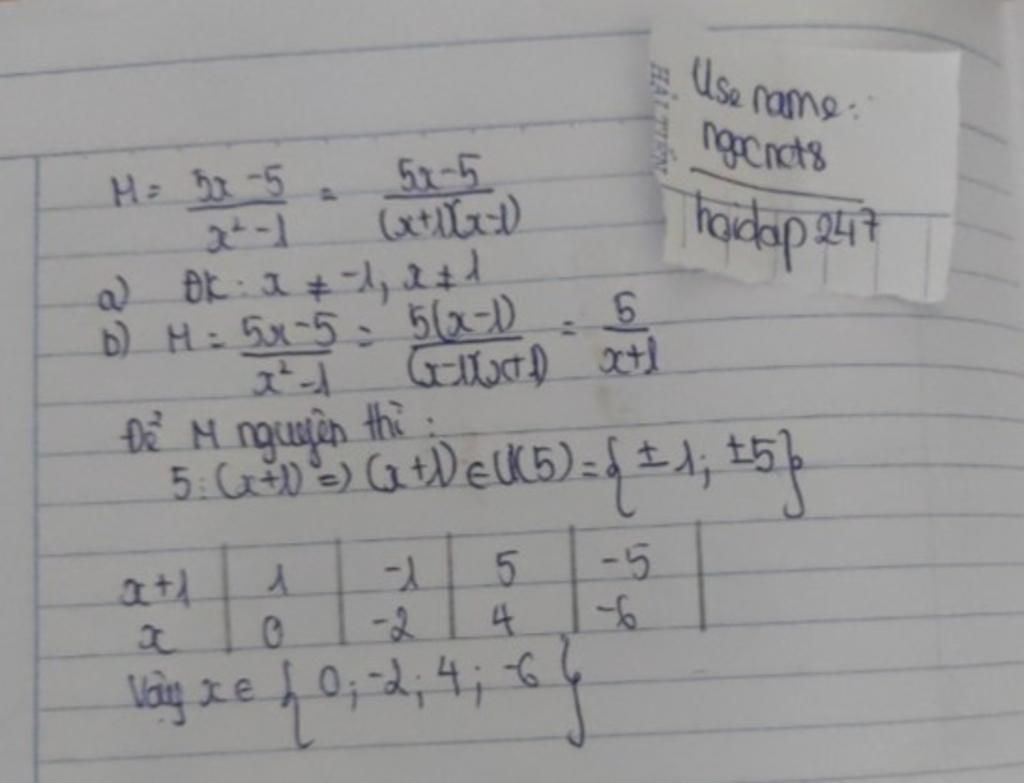 HẢI TIẾN
Use name:
ngocnct8
hoidap247
M = (5x-5)/(x²-1) = (5x-5)/((x+1)(x-1))
a) ĐK: x ≠ -1, x ≠ 1
b) M = (5x-5)/(x²-1) = 5(x-1)/((x-1)(x+1)) = 5/(x+1)
Để M nguyên thì:
5⋮(x+1) => (x+1) ∈ Ư(5) = {±1; ±5}
x+1 | 1 | -1 | 5 | -5 |
x | 0 | -2 | 4 | -6 |
Vậy x ∈ {0; -2; 4; -6}